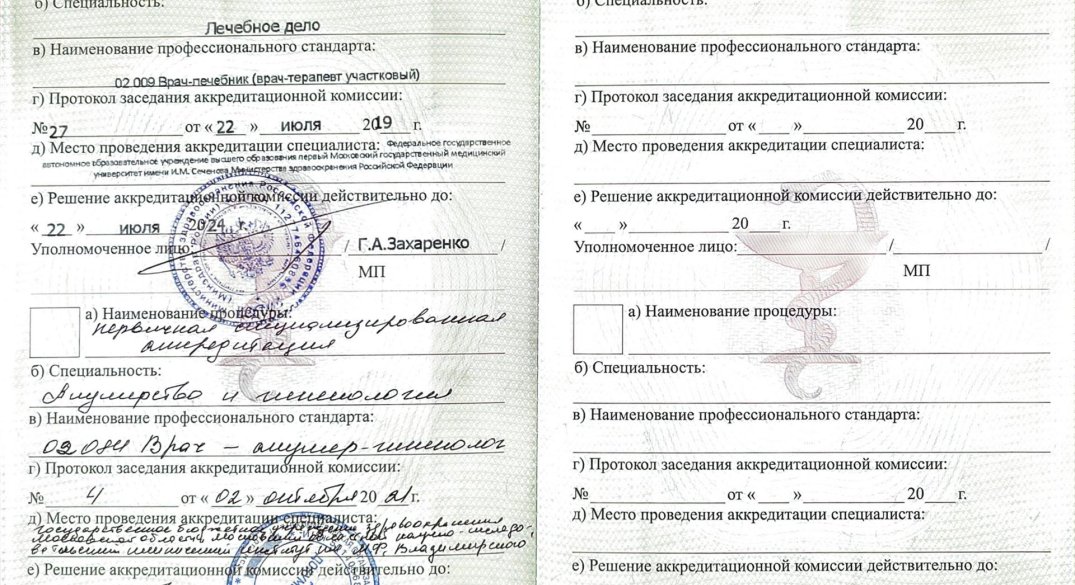 б) Специальность:
Лечебное дело
в) Наименование профессионального стандарта:
02.009 Врач-лечебник (врач-терапевт участковый)
г) Протокол заседания аккредитационной комиссии:
№ 27 от « 22 » июля 2019 г.
д) Место проведения аккредитации специалиста: Федеральное государственное
автономное образовательное учреждение высшего образования первый Московский государственный медицинский
университет имени И.М. Сеченова Министерства здравоохранения Российской Федерации
е) Решение аккредитационной комиссии действительно до:
« 22 » июля 2024 г.
Уполномоченное лицо: / Г.А.Захаренко /
МП
а) Наименование процедуры:
первичная специализированная
аккредитация
б) Специальность:
Акушерство и гинекология
в) Наименование профессионального стандарта:
Врач – акушер-гинеколог
г) Протокол заседания аккредитационной комиссии:
№ 4 от « 02 » октября 2021 г.
д) Место проведения аккредитации специалиста:
Государственное бюджетное учреждение здравоохранения
Московской области Московский областной научно-исследо-
вательский институт им. М.Ф. Владимирского
е) Решение аккредитационной комиссии действительно до:
б) Специальность:
в) Наименование профессионального стандарта:
г) Протокол заседания аккредитационной комиссии:
№ от « » 20 г.
д) Место проведения аккредитации специалиста:
е) Решение аккредитационной комиссии действительно до:
« » 20 г.
Уполномоченное лицо: / /
МП
а) Наименование процедуры:
б) Специальность:
в) Наименование профессионального стандарта:
г) Протокол заседания аккредитационной комиссии:
№ от « » 20 г.
д) Место проведения аккредитации специалиста:
е) Решение аккредитационной комиссии действительно до: